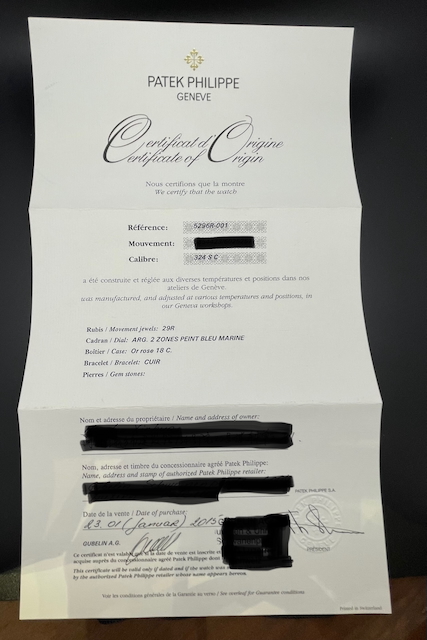 PATEK PHILIPPE
GENEVE
Certificat d'Origine
Certificate of Origin
Nous certifions que la montre
We certify that the watch
Référence: 5296R-001
Mouvement:
Calibre: 324 S C
a été construite et réglée aux diverses températures et positions dans nos
ateliers de Genève.
was manufactured, and adjusted at various temperatures and positions, in
our Geneva workshops.
Rubis / Movement jewels: 29R
Cadran / Dial: ARG. 2 ZONES PEINT BLEU MARINE
Boîtier / Case: Or rose 18 C.
Bracelet / Bracelet: CUIR
Pierres / Gem stones:
Nom et adresse du propriétaire / Name and address of owner:
Nom, adresse et timbre du concessionnaire agréé Patek Philippe:
Name, address and stamp of authorized Patek Philippe retailer:
PATEK PHILIPPE S.A.
Date de la vente / Date of purchase:
23. 01 (Januar) 2015
GUBELIN A.G.
Ce certificat n'est valable que si la date de vente est inscrite et
acquise auprès du concessionnaire agréé Patek Philippe dont
This certificate will be valid only if dated and if the watch was
by the authorized Patek Philippe retailer whose name appears hereon.
Voir les conditions générales de la Garantie au verso / See overleaf for Guarantee conditions.
Printed in Switzerland